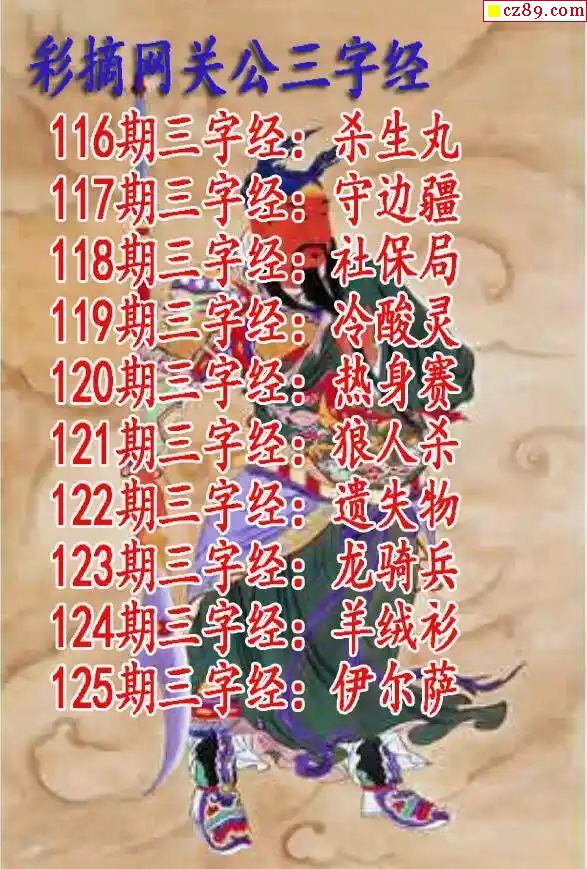 cz89.com
彩摘网关公三字经
116期三字经：杀生丸
117期三字经：守边疆
118期三字经：社保局
119期三字经：冷酸灵
120期三字经：热身赛
121期三字经：狼人杀
122期三字经：遗失物
123期三字经：龙骑兵
124期三字经：羊绒衫
125期三字经：伊尔萨